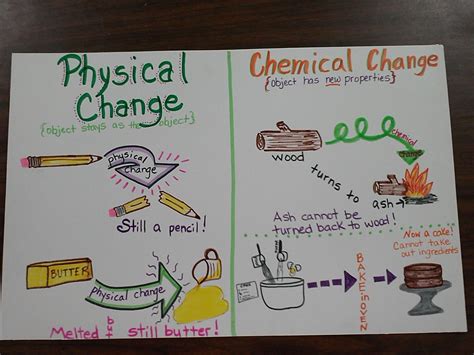 Physical
Change
{object stays as the object}
physical
change
Still a pencil!
BUTTER
physical change
Melted but still butter!
Chemical Change
{object has new properties}
chemical
change
wood
turns to
ash
Ash cannot be
turned back to wood!
Now a cake!
Cannot take
out ingredients
BAKE in OVEN